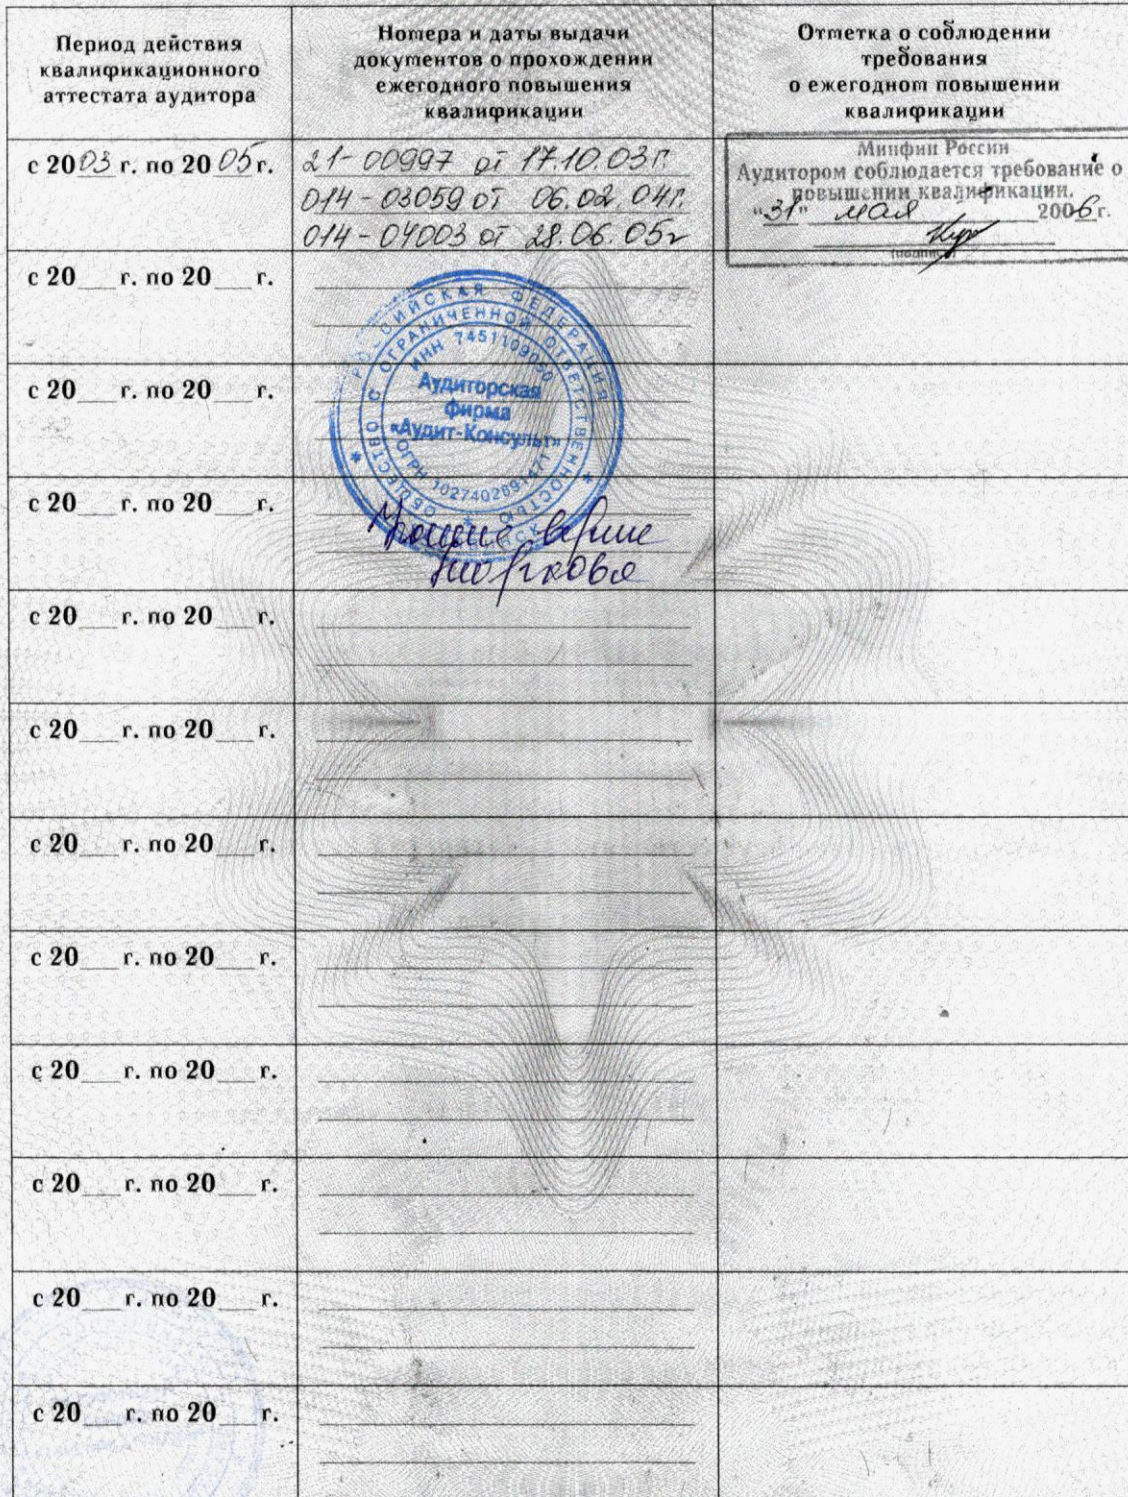 Период действия
квалификационного
аттестата аудитора
Номера и даты выдачи
документов о прохождении
ежегодного повышения
квалификации
Отметка о соблюдении
требования
о ежегодном повышении
квалификации
с 2003 г. по 2005 г.
21-00997 от 17.10.03г.
014-03059 от 06.02.04г.
014-04003 от 28.06.05г
Минфин России
Аудитором соблюдается требование о
повышении квалификации.
"31" мая 2006 г.
(подпись)
с 20___ г. по 20___ г.
РОССИЙСКАЯ ФЕДЕРАЦИЯ
ОБЩЕСТВО С ОГРАНИЧЕННОЙ ОТВЕТСТВЕННОСТЬЮ
ИНН 7451109050
Аудиторская
фирма
«Аудит-Консульт»
ОГРН
с 20___ г. по 20___ г.
с 20___ г. по 20___ г.
с 20___ г. по 20___ г.
с 20___ г. по 20___ г.
с 20___ г. по 20___ г.
с 20___ г. по 20___ г.
с 20___ г. по 20___ г.
с 20___ г. по 20___ г.
с 20___ г. по 20___ г.
с 20___ г. по 20___ г.